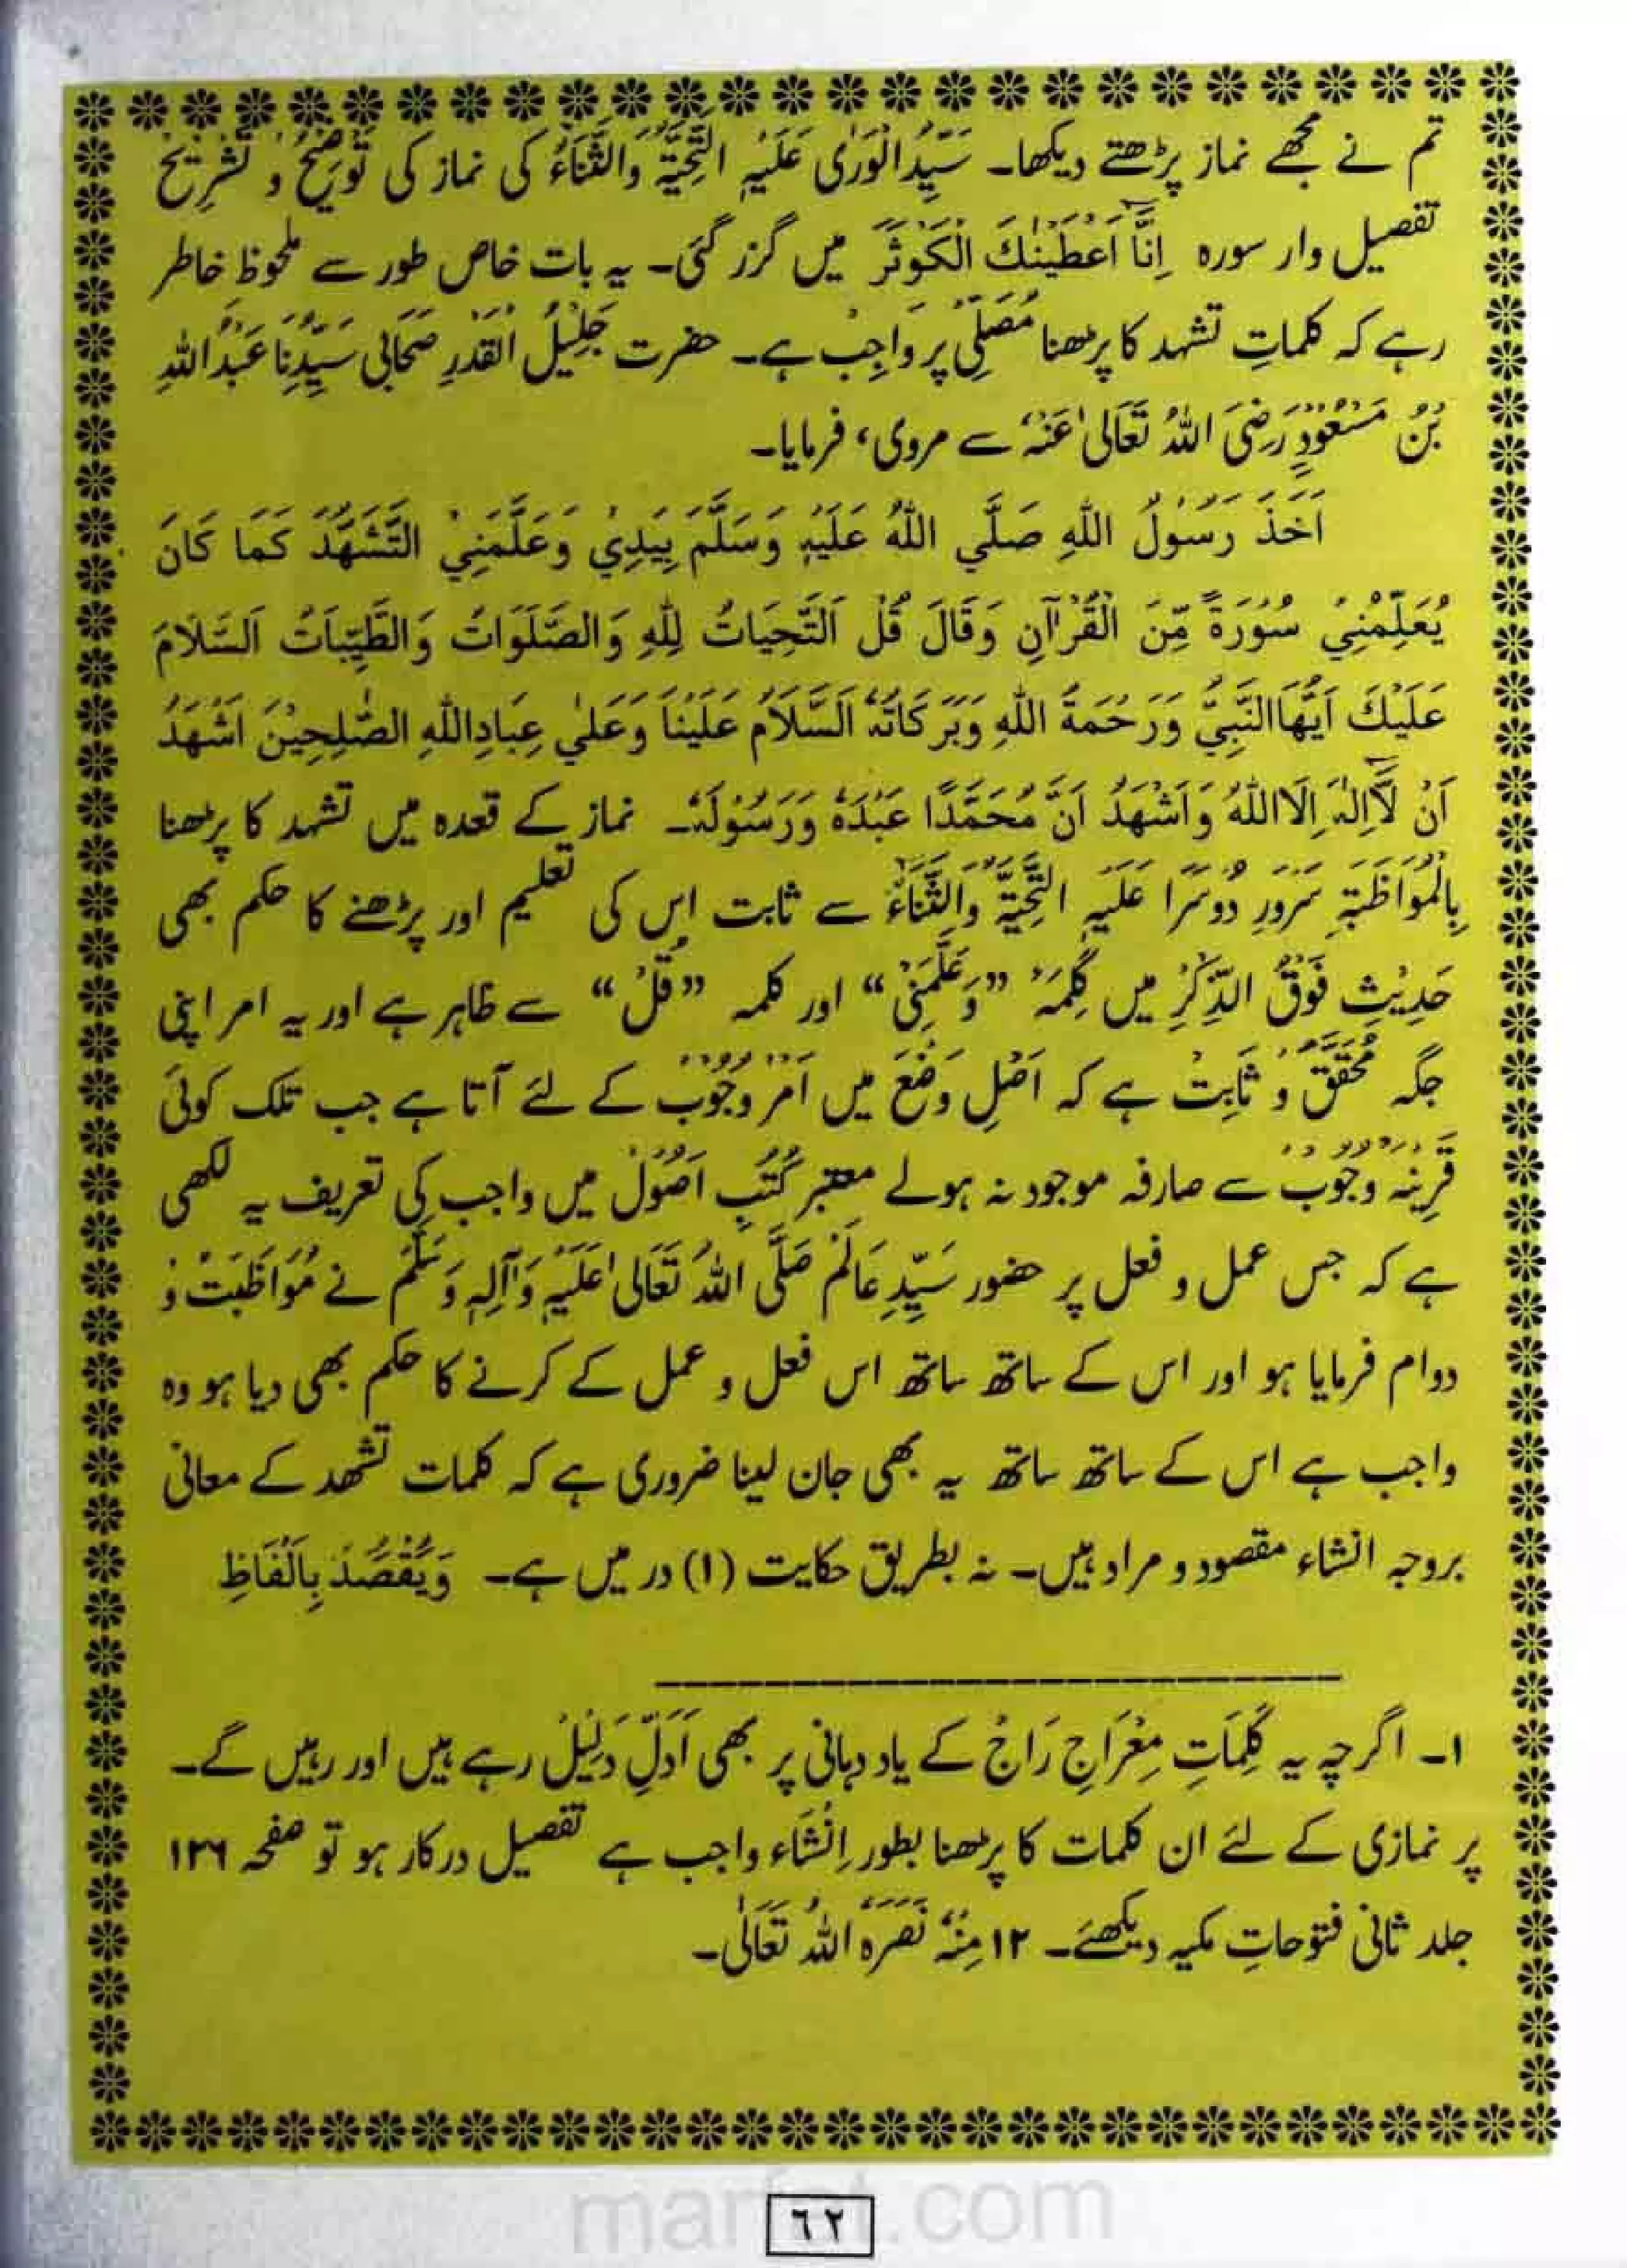 تم نے مجھے نماز پڑھتے دیکھا۔ سَیِّدُالْوَرٰی عَلَیْہِ التَّحِیَّۃُ وَالثَّنَاءُ کی نماز کی تَوْضِیْحُ و تَشْرِیْحُ
تفصیل وار سورہ اِنَّاۤ اَعْطَیْنٰكَ الْكَوْثَرَ میں گزر گئی۔ یہ بات خاص طور سے ملحوظ خاطر
رہے کہ کلماتِ تشہد کا پڑھنا مُصَلِّی پر وَاجِبْ ہے۔ حضرت جَلِیْلُ الْقَدْرِ صَحَابِی سَیِّدُنَا عَبْدُاللہِ
بْنُ مَسْعُوْدٍ رَضِیَ اللہُ تَعَالٰی عَنْہُ سے مروی، فرمایا۔
اَخَذَ رَسُوْلُ اللهِ صَلَّي اللهُ عَلَيْهِ وَسَلَّمَ بِيَدِيْ وَعَلَّمَنِيْ التَّشَهُّدَ كَمَا كَانَ
يُعَلِّمُنِيْ سُوْرَةً مِّنَ الْقُرْاٰنِ وَقَالَ قُلْ اَلتَّحِيَاتُ لِلّٰهِ وَالصَّلَوَاتُ وَالطَّيِّبَاتُ اَلسَّلَامَ
عَلَيْكَ اَيُّهَاالنَّبِيُّ وَرَحْمَةُ اللهِ وَبَرَكَاتُهٗ اَلسَّلَامُ عَلَيْنَا وَعَلٰي عِبَادِاللهِ الصّٰلِحِيْنَ اَشْهَدُ
اَنْ لَّاۤ اِلٰهَ اِلَّااللهُ وَاَشْهَدُ اَنَّ مُحَمَّدًا عَبْدُهٗ وَرَسُوْلَهٗ۔ نماز کے قعدہ میں تشہد کا پڑھنا
بِالْمُوَاظَبَۃِ سَرْوَرِ دُوسَرَا عَلَیْہِ التَّحِیَّۃُ وَالثَّنَاءُ سے ثابت اس کی تعلیم اور پڑھنے کا حکم بھی
حَدِیْثِ فَوْقُ الذِّکْرِ میں کَلِمَہْ ”وَعَلَّمَنِیْ“ اور کلمہ ”قُلْ“ سے ظاہر ہے اور یہ امر اپنی
جگہ مُحَقَّقْ و ثَابِتْ ہے کہ اَصْلِ وَضْعَ میں اَمْرْ وُجُوْبْ کے لئے آتا ہے جب تلک کوئی
قَرِیْنَہْ وُجُوْبْ سے صارفہ موجود نہ ہولے معتبر کُتُبِ اُصُوْلْ میں واجب کی تعریف یہ لکھی
ہے کہ جس عمل و فعل پر حضور سَیِّدِ عَالَمْ صَلَّی اللہُ تَعَالٰی عَلَیْہِ وَاٰلِہٖ وَسَلَّمْ نے مُوَاظَبَتْ و
دوام فرمایا ہو اور اس کے ساتھ ساتھ اس فعل و عمل کے کرنے کا حکم بھی دیا ہو وہ
واجب ہے اس کے ساتھ ساتھ یہ بھی جان لینا ضروری ہے کہ کلمات تشھد کے معانی
بروجہ انشاء مقصود و مراد ہیں۔ نہ بطریق حکایت (۱) در میں ہے۔ وَيُقْصَدُ بِاَلْفَاظِ
۱۔ اگرچہ یہ کَلِمَاتِ مِعْرَاجِ رَاجْ کے یاد دہانی پر بھی اَدَلِّ دَلِیْلْ رہے ہیں اور رہیں گے۔
پر نمازی کے لئے ان کلمات کا پڑھنا بطور اِنْشَاء واجب ہے تفصیل درکار ہو تو صفحہ ۱۳۶
جلد ثانی فتوحاتِ مکیہ دیکھئے۔ ۱۲ مِنْہُ نَصَرَہُ اللہُ تَعَالٰی۔
٦٢